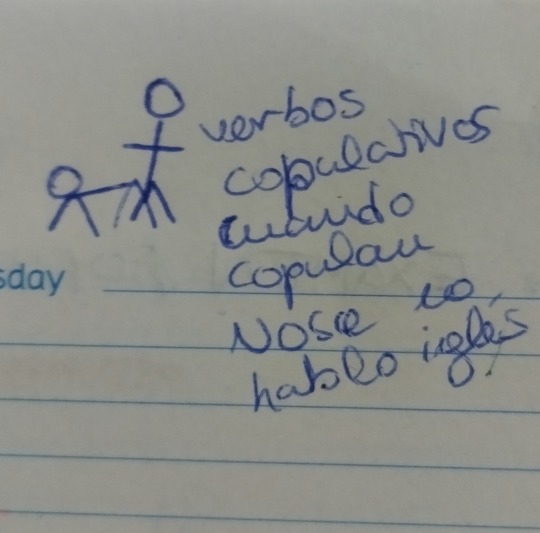 verbos
copulativos
cuando
copulan
Nose no,
hablo ingles
sday